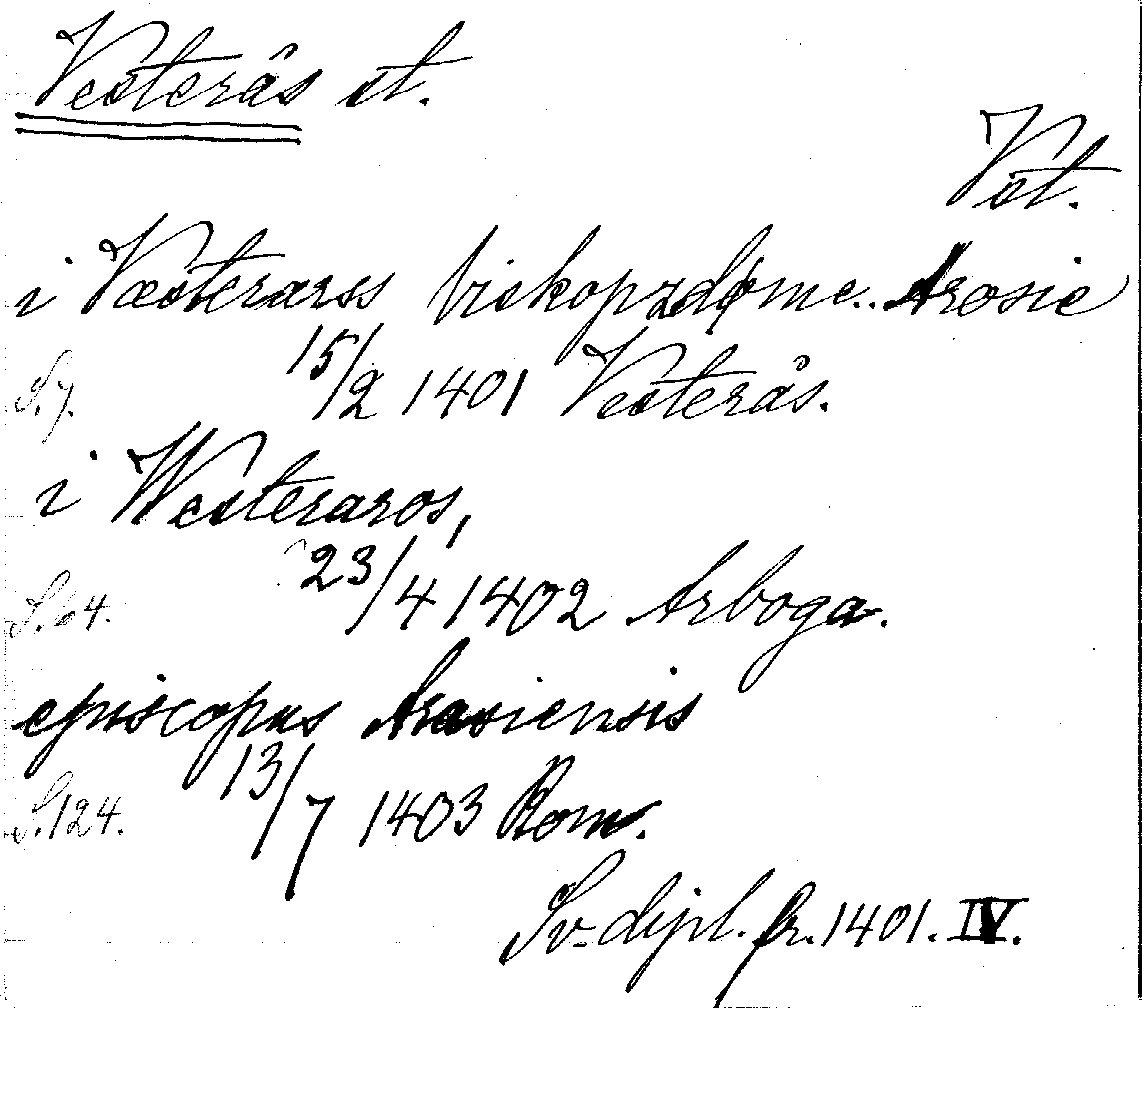 Vesterås st.
Vst.
i Væsterarss biskopzdøme.. Arosie
S. 7. 15/2 1401 Vesterås.
i Westeraros,
S. 64. 23/4 1402 Arboga.
episcopus Arosiensis
S. 124. 13/7 1403 Rom.
Sv. dipl. fr. 1401. IV.